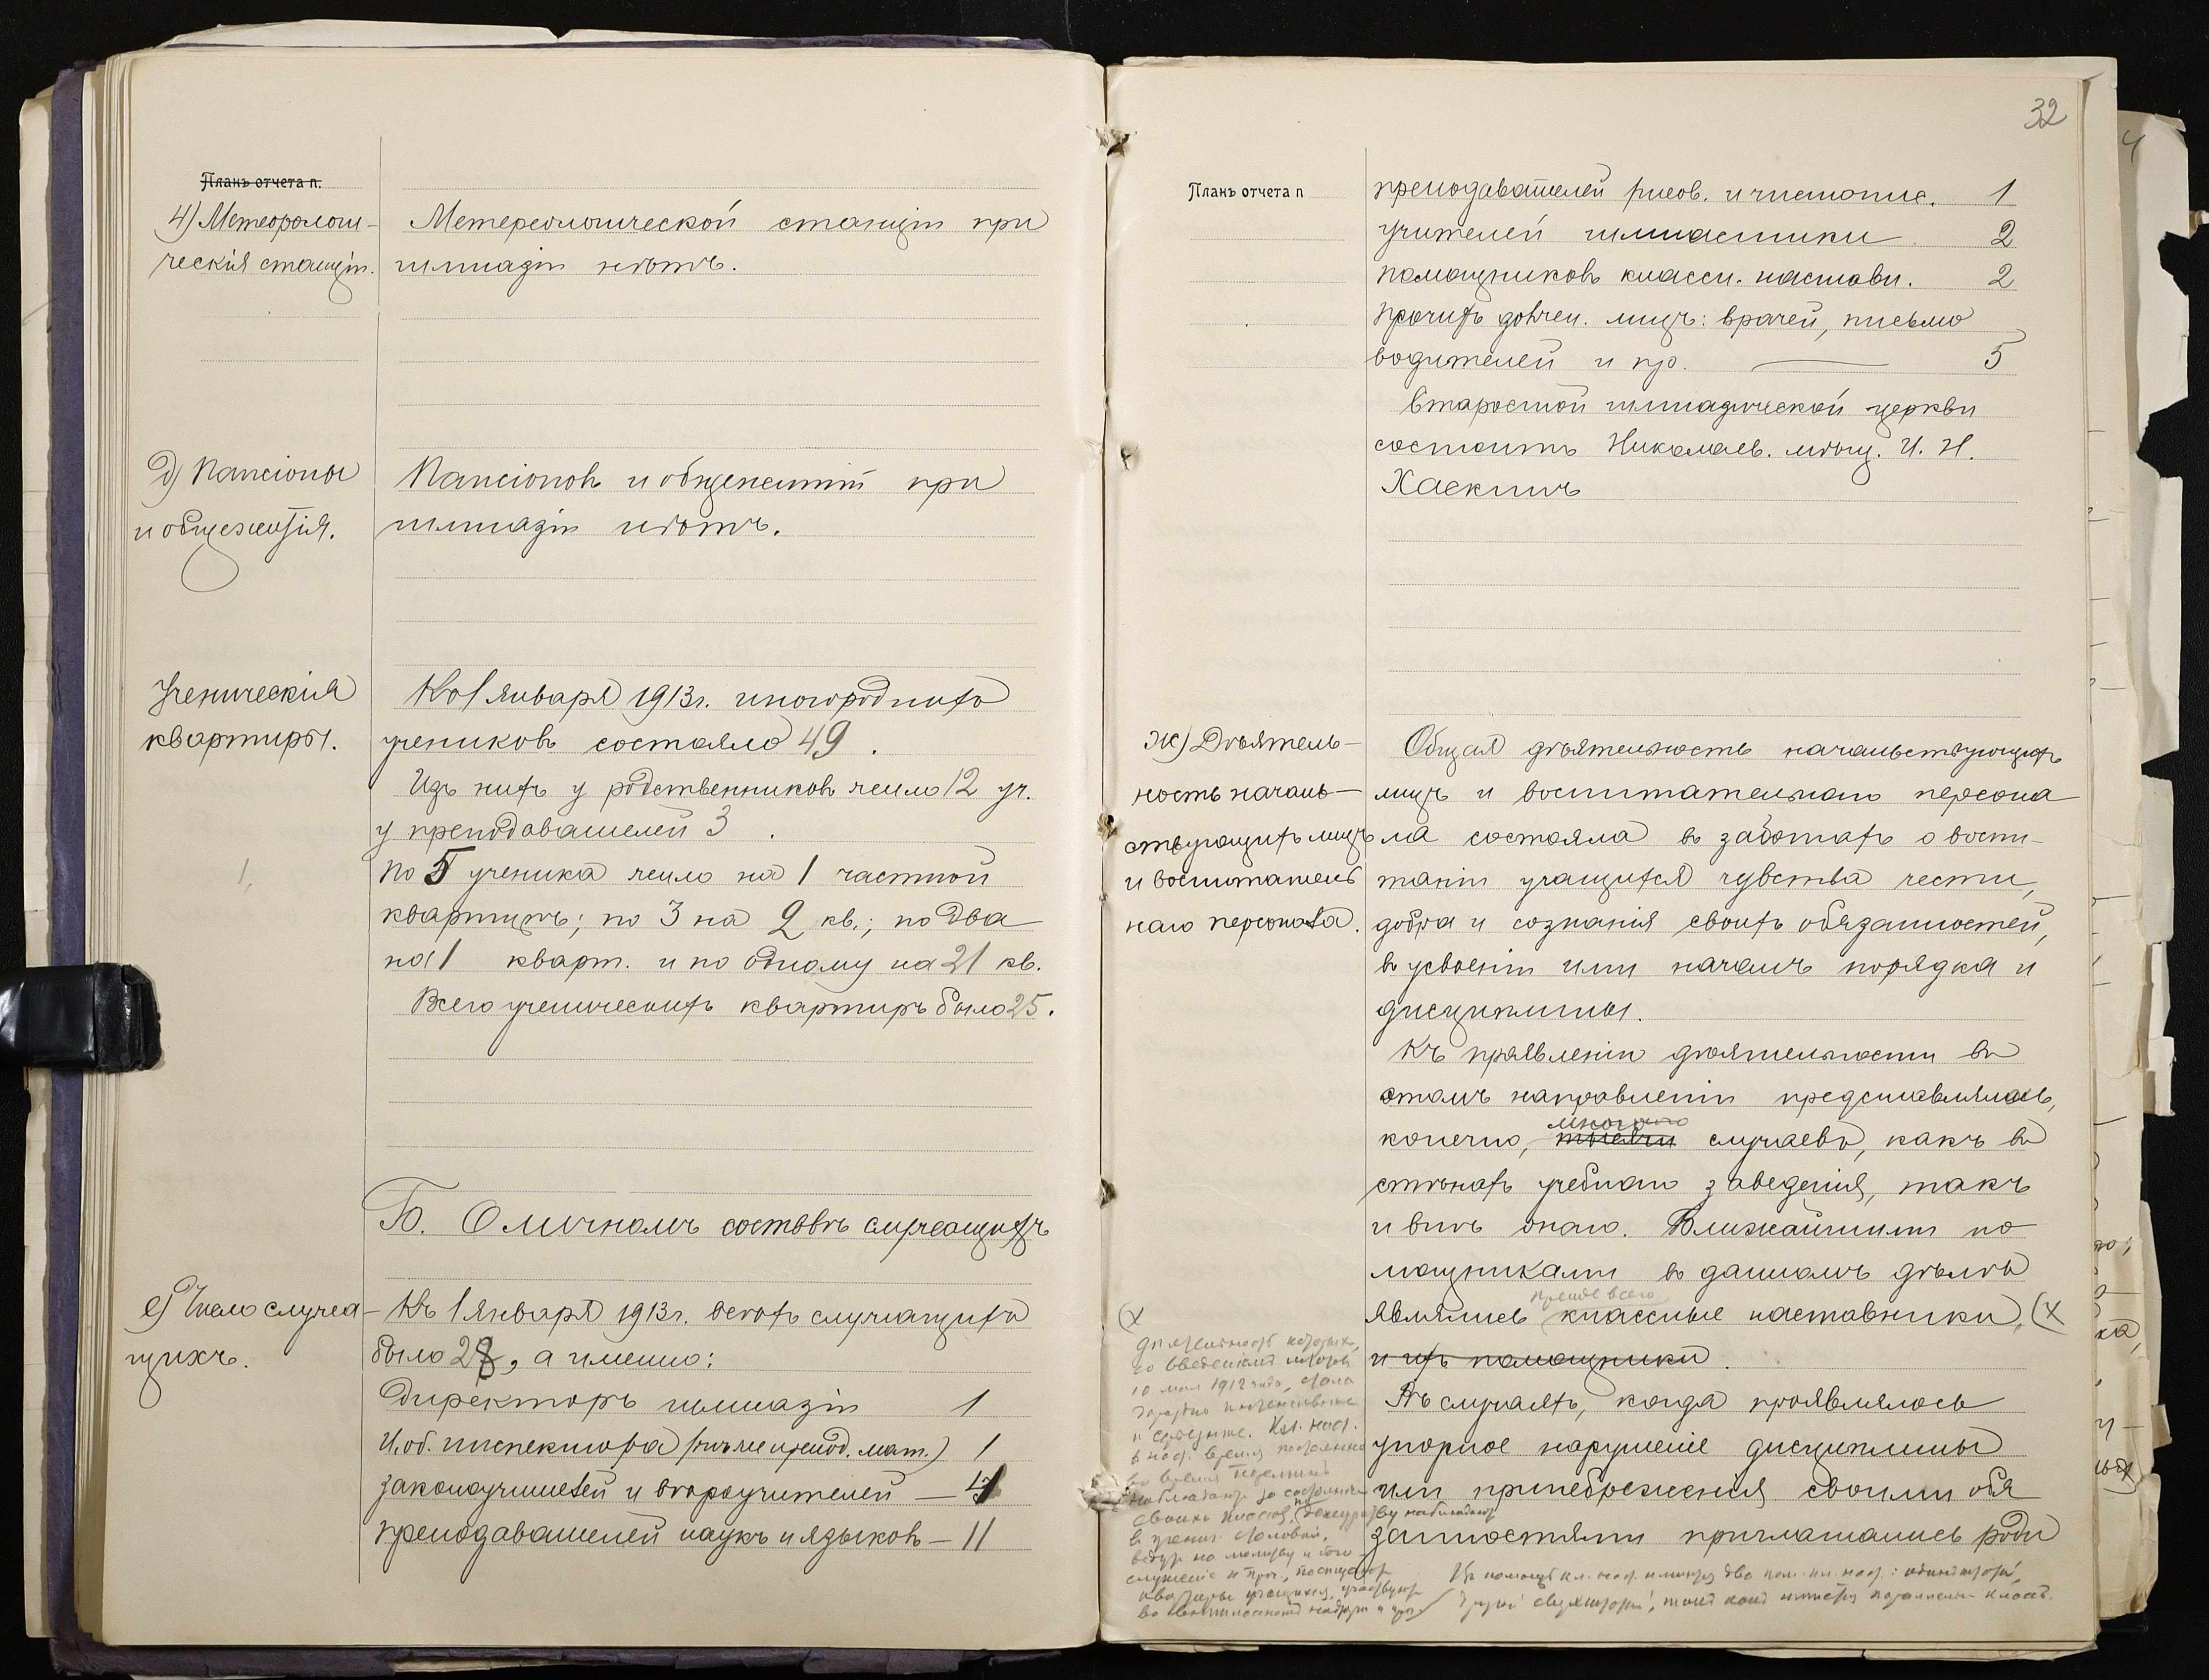 Планъ отчета п.
4) Метеорологи-
ческія станціи.
Метереологической станціи при
гимназіи нѣтъ.
д) Пансіоны
и общежитія.
Пансіоновъ и общежитій при
гимназіи нѣтъ.
Ученическія
квартиры.
Ко 1 января 1913 г. иногороднихъ
учениковъ состояло 49.
Изъ нихъ у родственниковъ жило 12 уч.
у преподавателей 3.
По 5 ученика жило на 1 частной
квартирѣ; по 3 на 2 кв.; по два
на 1 кварт. и по одному на 21 кв.
Всего ученическихъ квартиръ было 25.
Б. О личномъ составѣ служащихъ
е) Число служа-
щихъ.
Къ 1 января 1913 г. всехъ служащихъ
было 28, а именно:
Директоръ гимназіи 1
И. об. инспектора (онъ же препод. мат.) 1
законоучителей и вѣроучителей — 4
преподавателей наукъ и языковъ — 11
32
Планъ отчета п
преподавателей рисов. и чистопис. 1
учителей гимнастики 2
помощниковъ классн. настави. 2
Прочихъ должн. лицъ: врачей, письмо
водителей и пр. — 5
Старостой гимназической церкви
состоитъ Николаев. мѣщ. И. Н.
Хаскинъ
Ж) Дѣятель-
ность началь-
ствующихъ лицъ
и воспитатель
наго персонала.
Общая дѣятельность начальствующихъ
лицъ и воспитательнаго персона
ла состояла въ заботахъ о воспи-
таніи учащихся чувства чести,
добра и сознанія своихъ обязанностей,
въ усвоеніи ими началъ порядка и
дисциплины.
Къ проявленію дѣятельности въ
этомъ направленіи представлялось,
много
конечно, случаевъ, какъ въ
стѣнахъ учебнаго заведенія, такъ
и внѣ онаго. Ближайшими по
мощниками въ данномъ дѣлѣ
прежде всего
являлись классные наставники, (х
и ихъ помощники.
Въ случаяхъ, когда проявлялось
упорное нарушеніе дисциплины
или пренебреженія своими обя
занностями приглашались роди
(х
дѣятельность которыхъ,
со введеніемъ
10 мая 1912 года, стала
гораздо
Кл. наст.
в наст. время
во время перемѣнъ
наблюдают за
своихъ классов,
на молитву и бого-
служеніе и проч., посѣщают
квартиры учащихся, участвуют
Въ помощь кл. наст. имѣются два пом. кл. наст.: